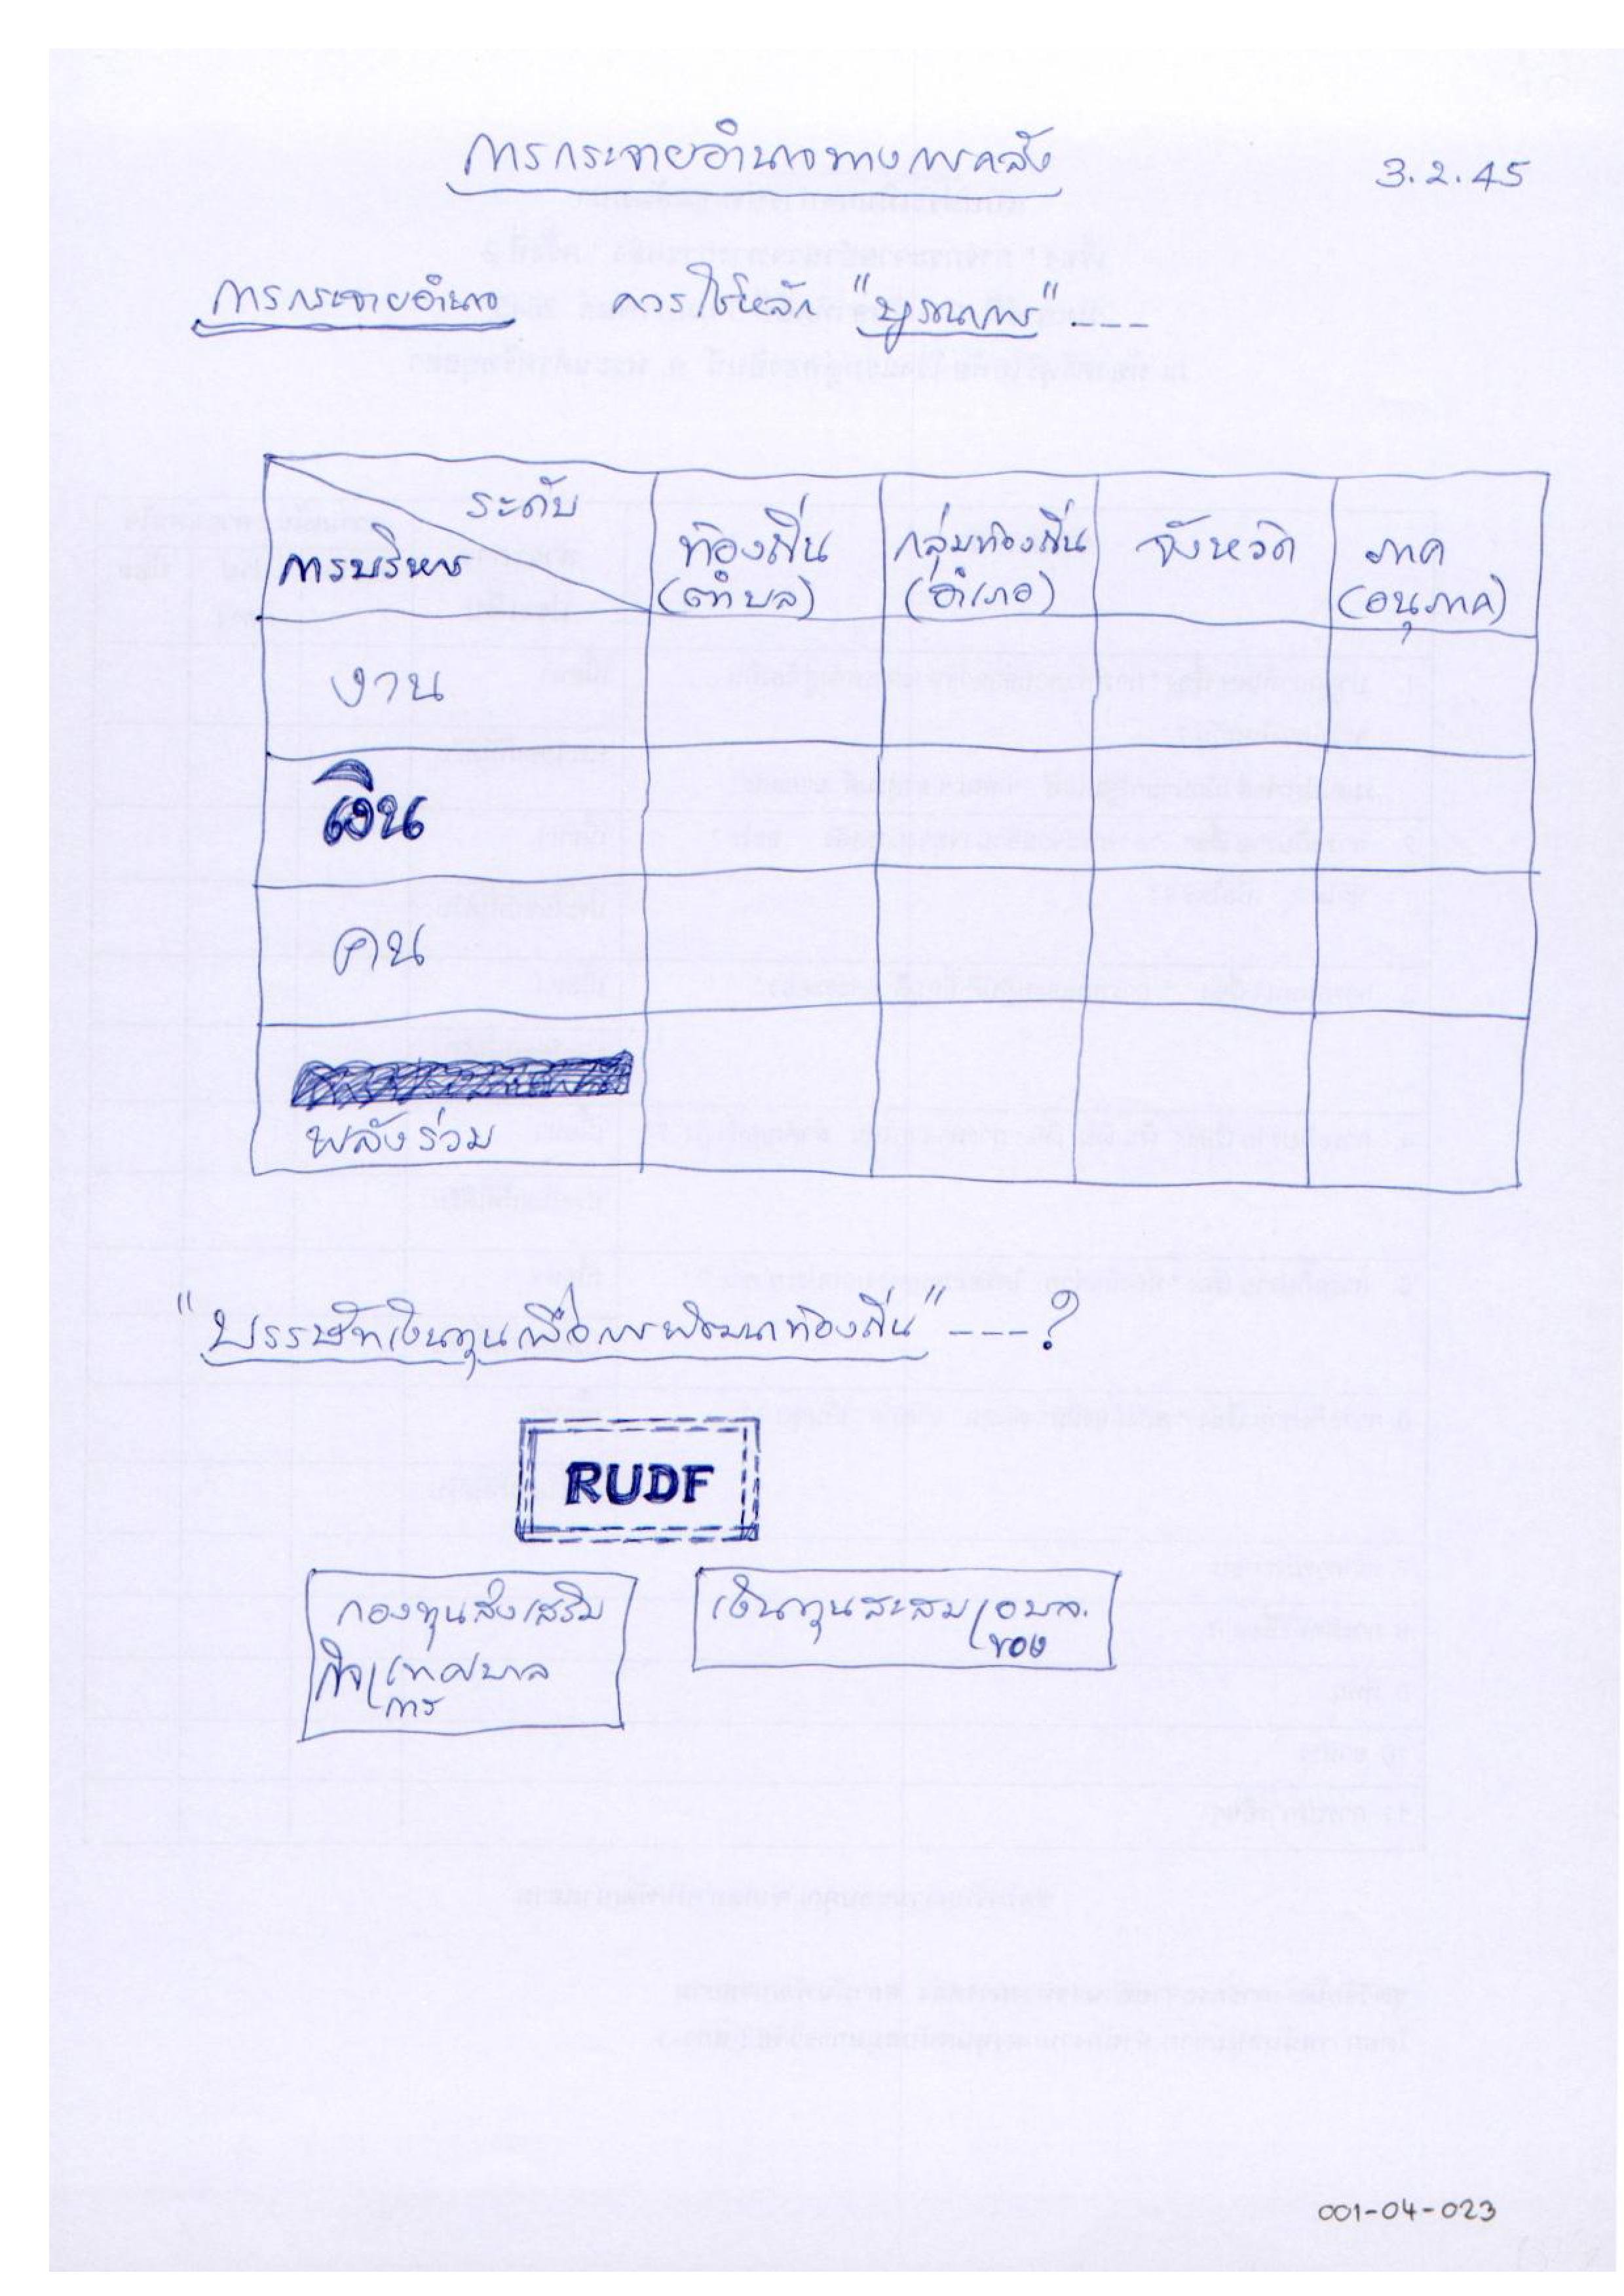 การกระจายอำนาจทางการคลัง
3.2.45
การกระจายอำนาจ ควรใช้หลัก "บูรณาการ" ---
ระดับ
การบริหาร
ท้องถิ่น
(ตำบล)
กลุ่มท้องถิ่น
(อำเภอ)
จังหวัด
ภาค
(อนุภาค)
งาน
เงิน
คน
พลังร่วม
"บรรษัทเงินทุนเพื่อการพัฒนาท้องถิ่น" ---?
RUDF
กองทุนส่งเสริม
กิจการเทศบาล
เงินทุนสะสมของ อบจ.
001-04-023